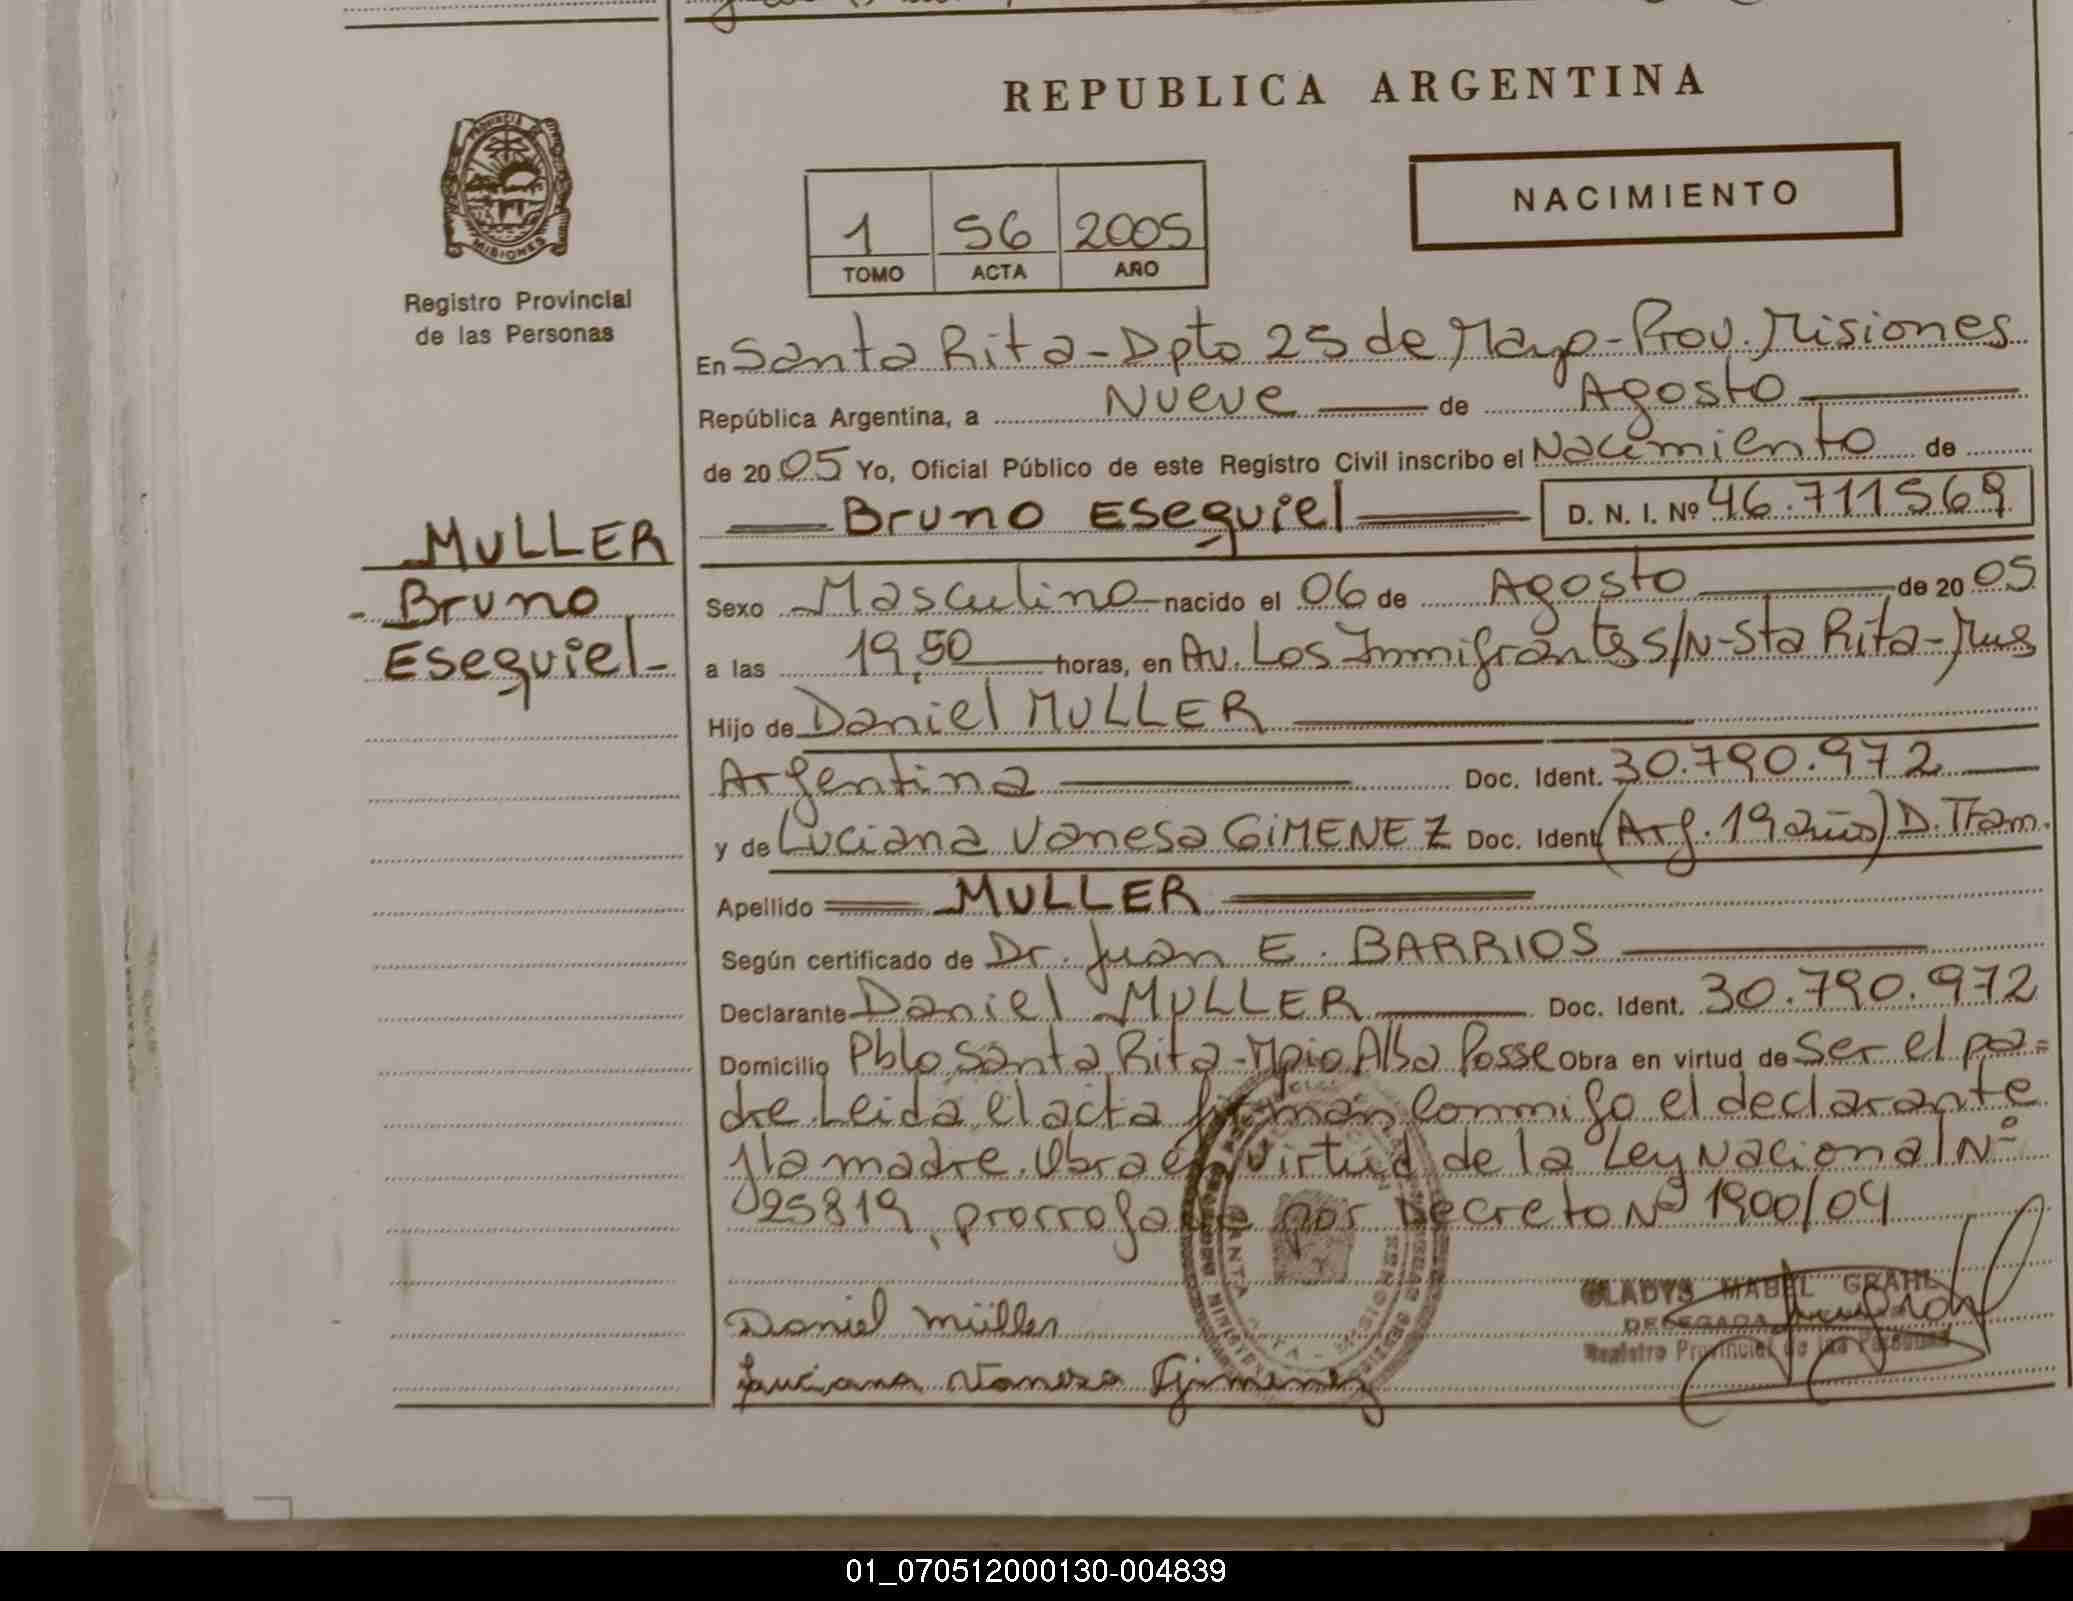 REPUBLICA ARGENTINA
NACIMIENTO
1 56 2005
TOMO ACTA AÑO
PROVINCIA DE MISIONES
Registro Provincial
de las Personas
MULLER
- Bruno
Esequiel -
En Santa Rita - Dpto 25 de Mayo - Prov. Misiones
República Argentina, a Nueve de Agosto
de 20 05 Yo, Oficial Público de este Registro Civil inscribo el Nacimiento de
Bruno Esequiel D. N. I. Nº 46.711569
Sexo Masculino nacido el 06 de Agosto de 20 05
a las 19,50 horas, en Av. Los Inmigrantes S/N - Sta Rita - Mnes
Hijo de Daniel MULLER
Argentina Doc. Ident. 30.790.972
y de Luciana Vanesa GIMENEZ Doc. Ident (Arg. 19 años) D. Tram.
Apellido MULLER
Según certificado de Dr. Juan E. BARRIOS
Declarante Daniel MULLER Doc. Ident. 30.790.972
Domicilio Pblo Santa Rita - Mpio Alba Posse Obra en virtud de Ser el pa=
dre Leida el acta firman Conmigo el declarante
y la madre. Obra en virtud de la Ley Nacional Nº
25819, prorrogada por Decreto Nº 1900/04
Daniel Müller
Luciana Vanesa Gimenez
GLADYS MABEL GRAHL
DELEGADA
Registro Provincial de las Personas
SANTA RITA - MISIONES
01_070512000130-004839